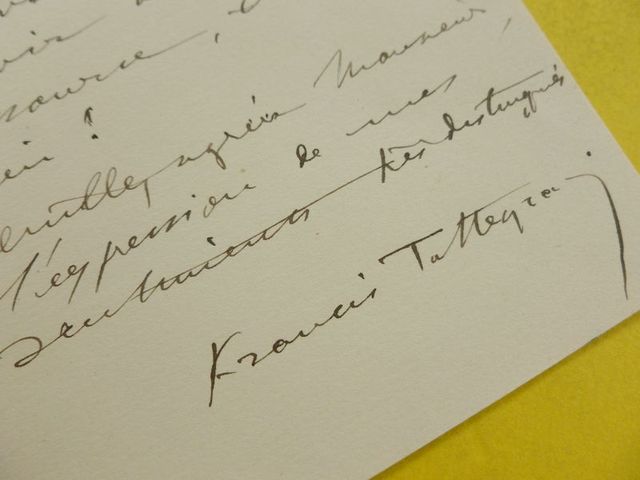 veuillez agréer Monsieur,
l'expression de mes
sentiments très distingués
Francis Tattegrain